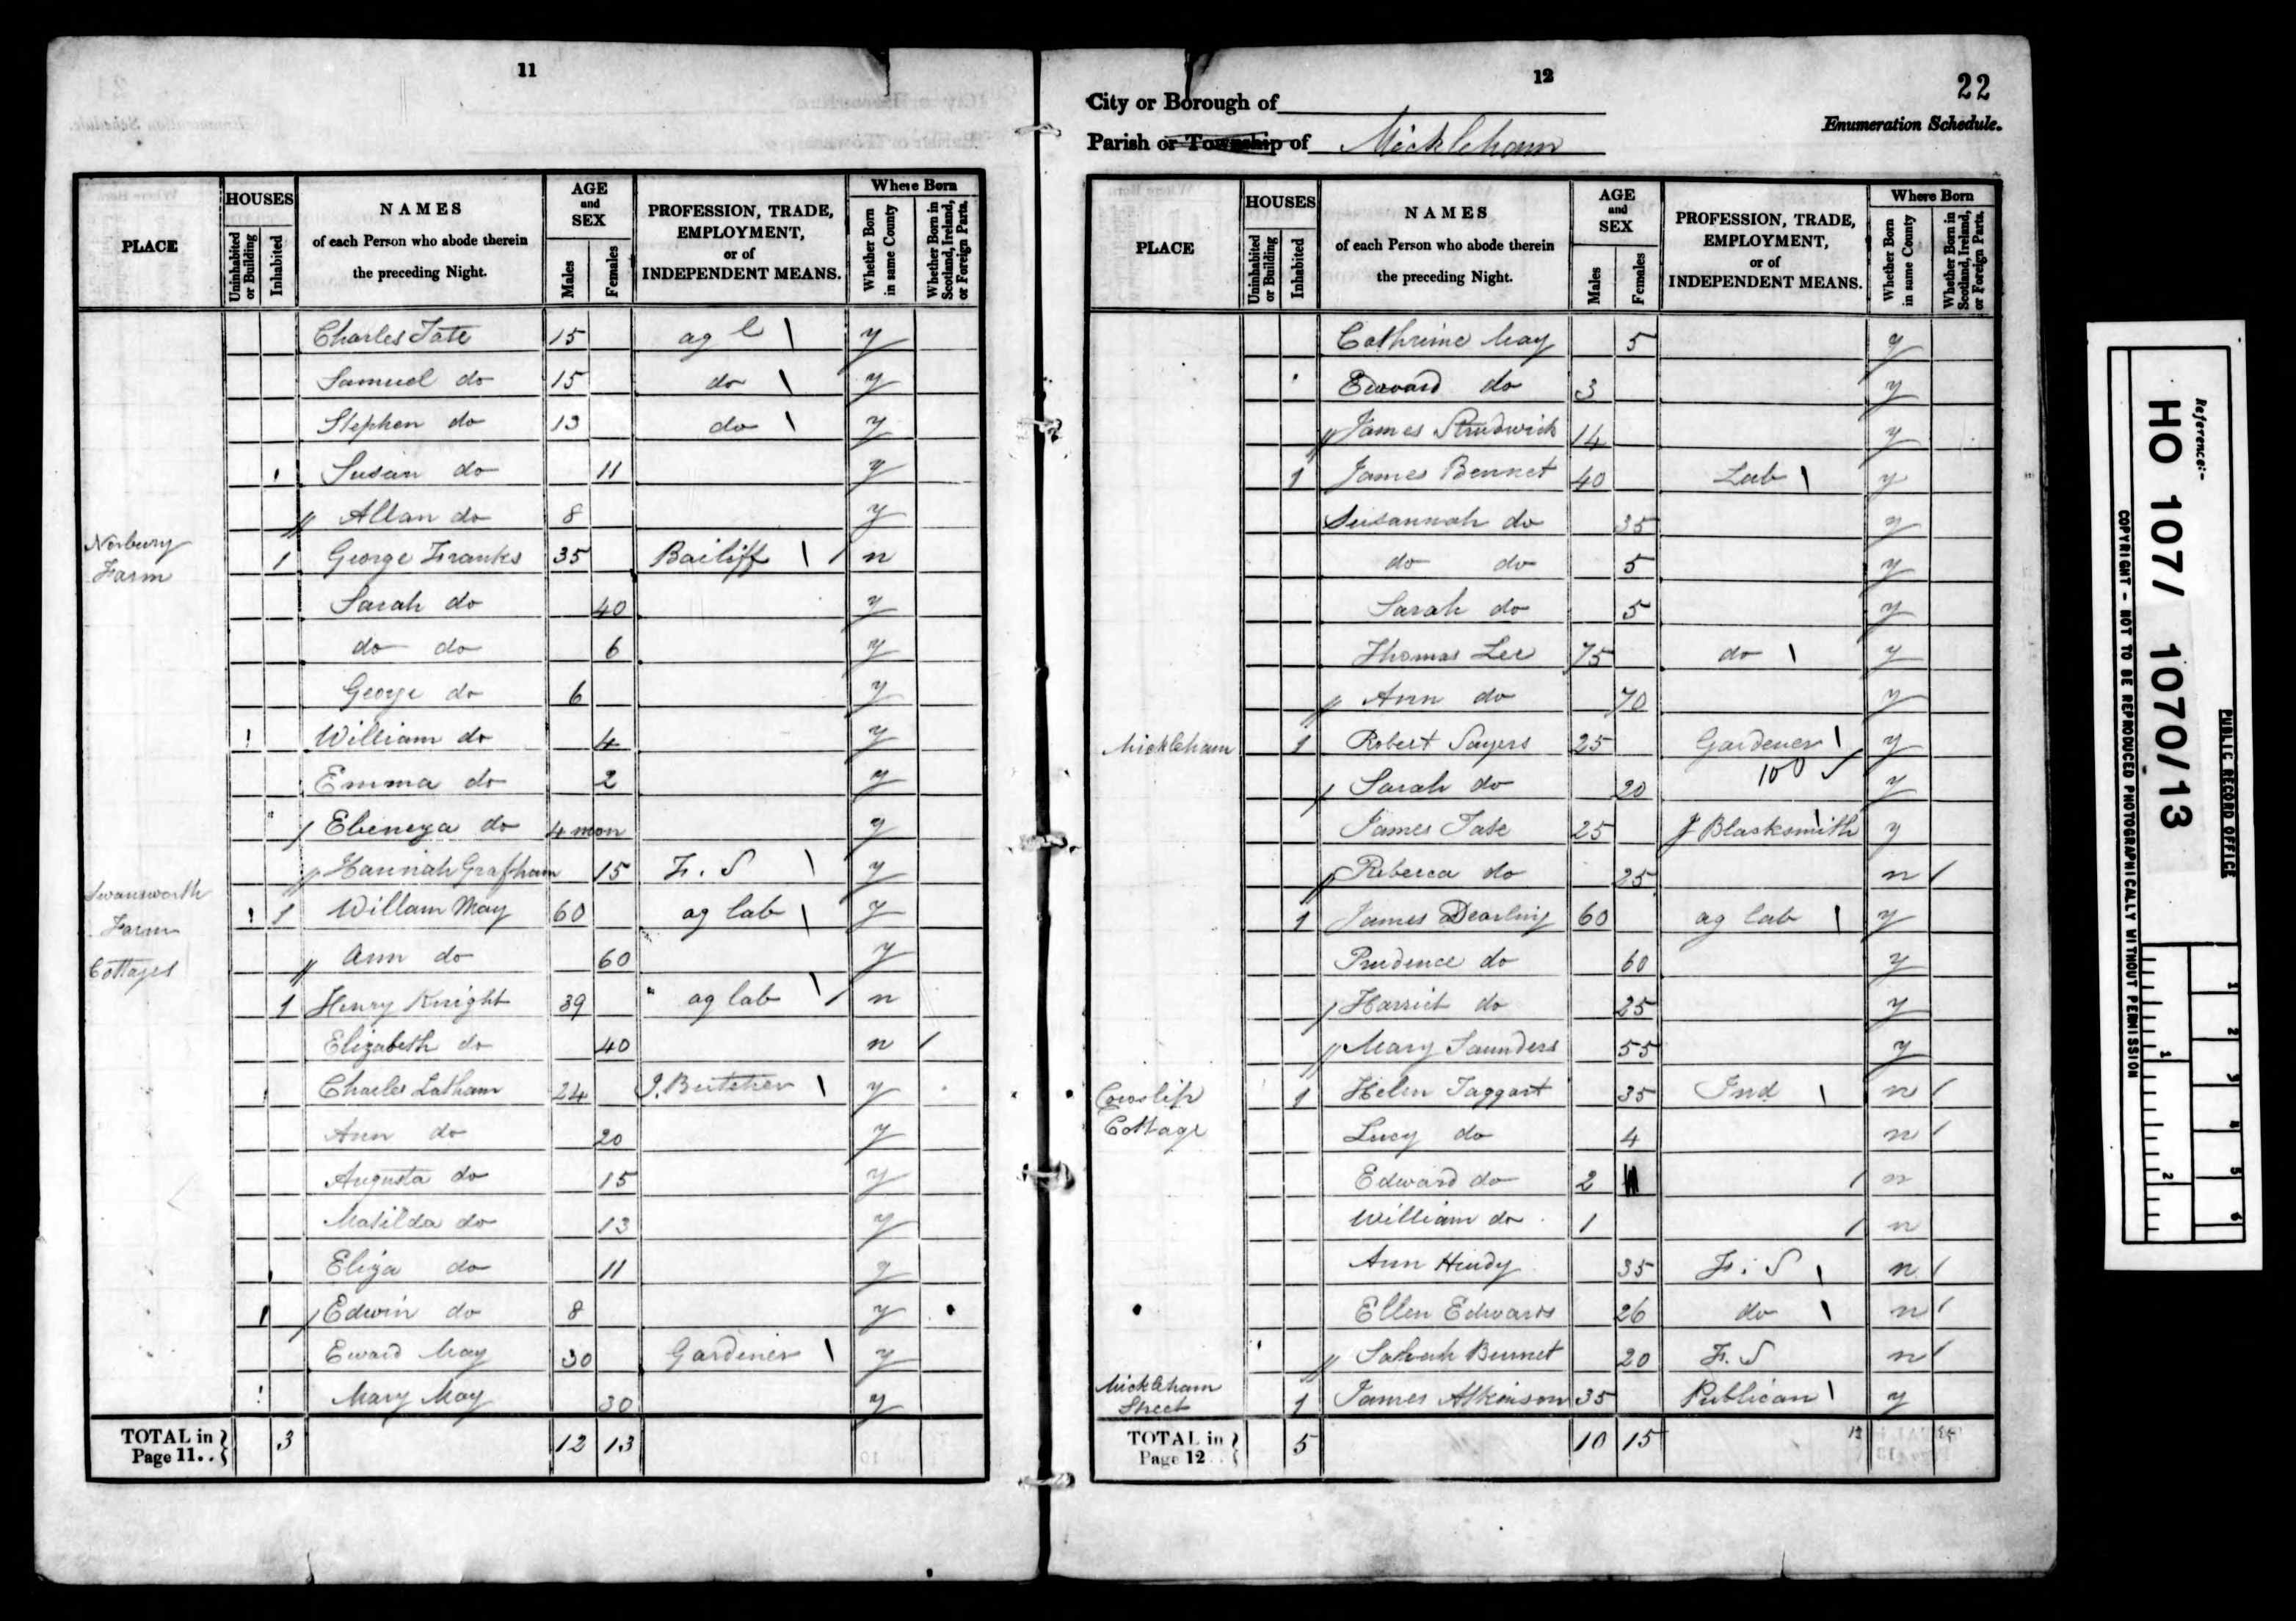 11
PLACE
HOUSES
Uninhabited or Building
Inhabited
NAMES
of each Person who abode therein
the preceding Night.
AGE
and
SEX
Males
Females
PROFESSION, TRADE,
EMPLOYMENT,
or of
INDEPENDENT MEANS.
Where Born
Whether Born in same County
Whether Born in Scotland, Ireland, or Foreign Parts.
Charles Tate 15 ag l y
Samuel do 15 do y
Stephen do 13 do y
Susan do 11 y
Allan do 8 y
Norbury Farm 1 George Franks 35 Bailiff n
Sarah do 40 y
do do 6 y
George do 6 y
William do 4 y
Emma do 2 y
Ebeneza do 4 mon y
Hannah Grafham 15 F. S y
Swansworth Farm Cottages 1 Willam May 60 ag lab y
Ann do 60 y
1 Henry Knight 39 ag lab n
Elizabeth do 40 n
Charles Latham 24 J. Butcher y
Ann do 20 y
Augusta do 15 y
Matilda do 13 y
Eliza do 11 y
Edwin do 8 y
Eward May 30 Gardener y
Mary May 30 y
TOTAL in Page 11.. 3 12 13
12
22
City or Borough of
Enumeration Schedule.
Parish or Township of Mickleham
PLACE
HOUSES
Uninhabited or Building
Inhabited
NAMES
of each Person who abode therein
the preceding Night.
AGE
and
SEX
Males
Females
PROFESSION, TRADE,
EMPLOYMENT,
or of
INDEPENDENT MEANS.
Where Born
Whether Born in same County
Whether Born in Scotland, Ireland, or Foreign Parts.
Cathrine May 5 y
Edward do 3 y
James Strudwick 14 y
1 James Bennet 40 Lab y
Susannah do 35 y
do do 5 y
Sarah do 5 y
Thomas Lee 75 do y
Ann do 70 y
Mickleham 1 Robert Sayers 25 Gardener y
Sarah do 20 100 y
James Tate 25 J Blacksmith y
Rebecca do 25 n
1 James Dearling 60 ag lab y
Prudence do 60 y
Harriet do 25 y
Mary Saunders 55 y
Cowslip Cottage 1 Helen Taggart 35 Ind n
Lucy do 4 n
Edward do 2 n
William do 1 n
Ann 35 F. S n
Ellen Edwards 26 do n
Sahah Burnet 20 F. S n
Mickleham Street 1 James Atkinson 35 Publican y
TOTAL in Page 12.. 5 10 15
Reference:-
HO 107/ 1070/13
PUBLIC RECORD OFFICE
COPYRIGHT - NOT TO BE REPRODUCED PHOTOGRAPHICALLY WITHOUT PERMISSION
1
2
3
4
5
6
1
2